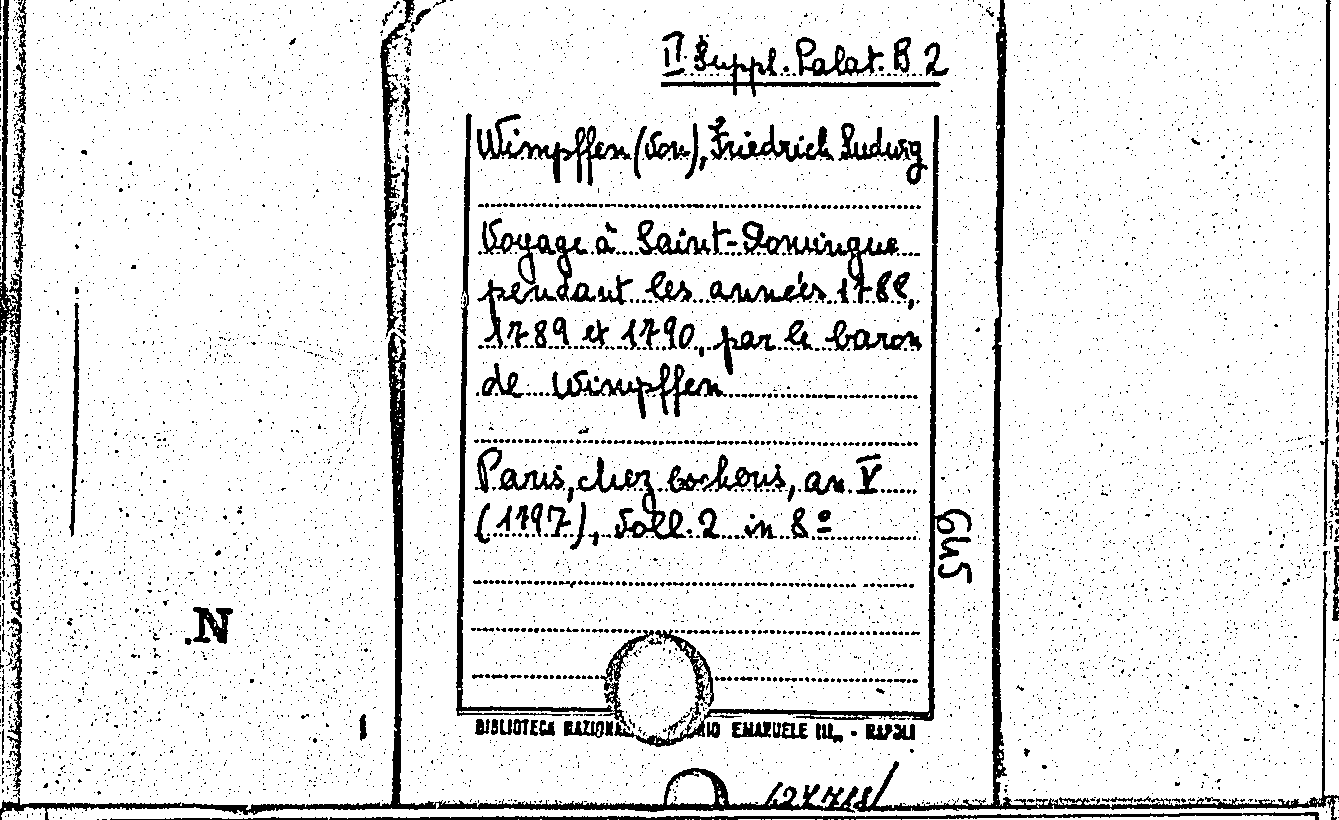 II Suppl. Palat. B 2
Wimpffen (von), Friedrich Ludwig
Voyage à Saint-Domingue
pendant les années 1788,
1789 et 1790, par le baron
de Wimpffen
Paris, chez Cocheris, an V
(1797), Voll. 2 in 8º
GUS
.N
BIBLIOTECA EMANUELE III„ - NAPOLI